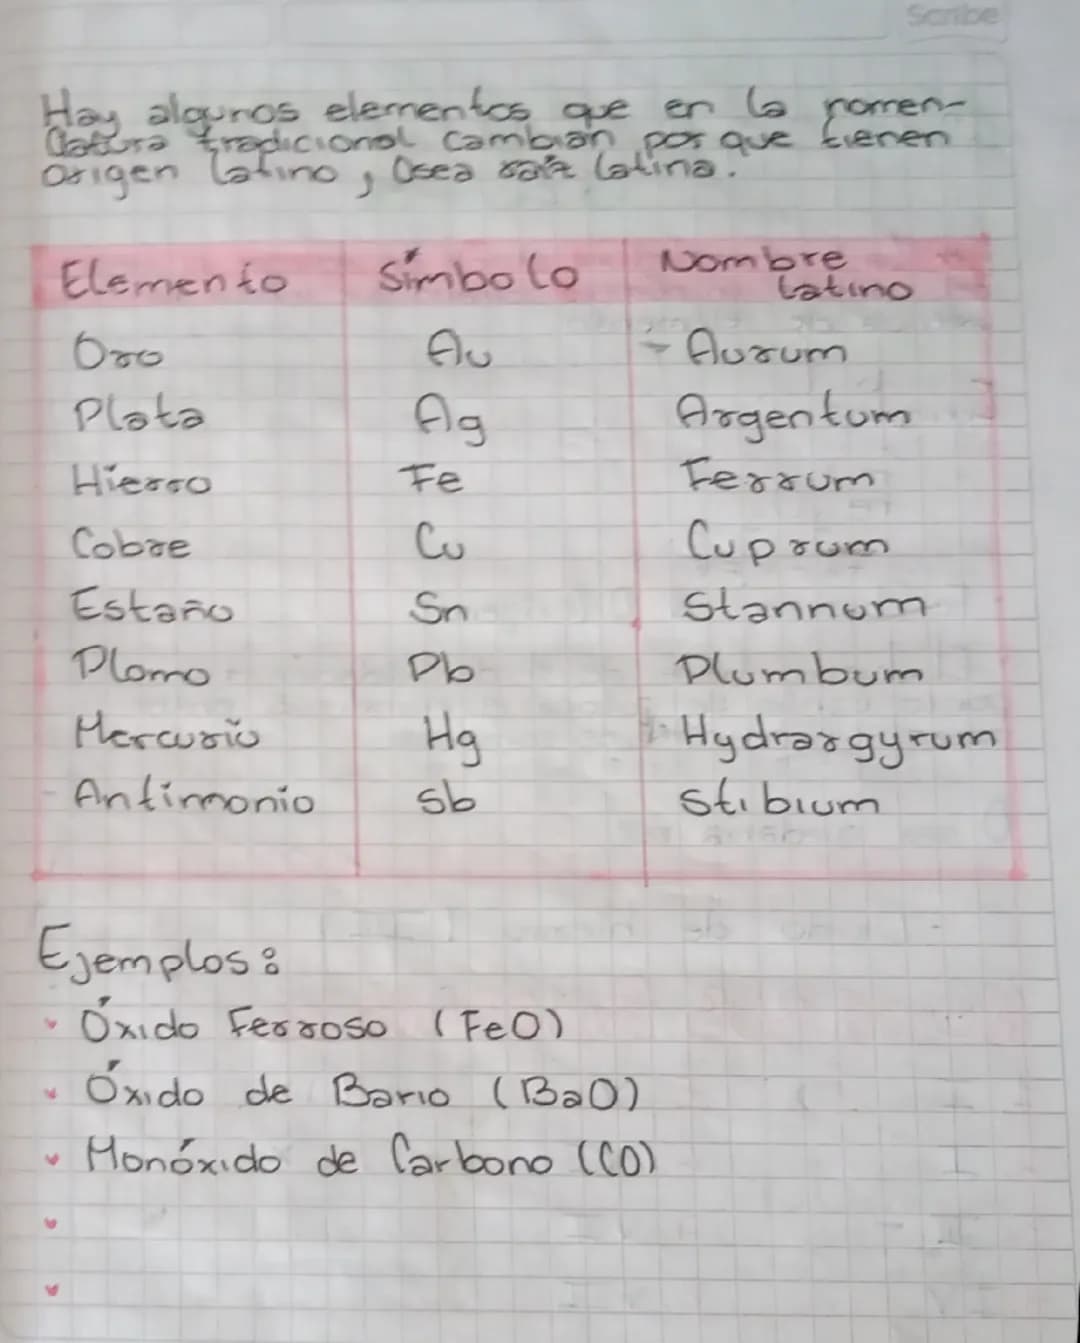 Scribe
Hay algunos elementos que en la nomen-
clatura tradicional cambian por que tienen
origen latino, Osea raíz latina.
Elemento Símbolo Nombre latino
Oro Au Aurum
Plata Ag Argentum
Hierro Fe Ferrum
Cobre Cu Cuprum
Estaño Sn Stannum
Plomo Pb Plumbum
Mercurio Hg Hydrargyrum
Antimonio Sb Stibium
Ejemplos:
Óxido Ferroso (FeO)
Óxido de Bario (BaO)
Monóxido de Carbono (CO)